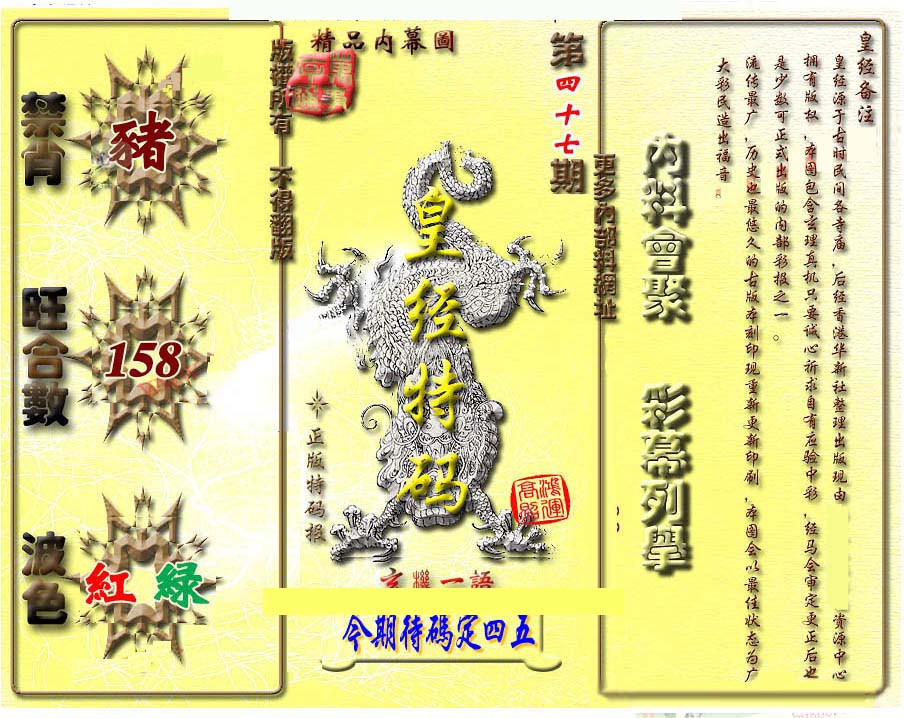 皇经备注
皇经源于古时民间各寺庙,后经香港华新社整理出版现由
资源中心
拥有版权,本图包含玄理真机只要诚心祈求自有应验中彩,经马会审定更正后也
是少数可正式出版的内部彩报之一。
流传最广,历史也最悠久的古版本刻印现重新更新印刷,本图会以最佳状态为广
大彩民造出福音
内料會聚
彩幕列舉
更多內部料網址
第四十七期
精品内幕圖
皇经特码
正版特码报
鴻運
高照
玄機一語
今期待碼定四五
版權所有 不得翻版
禁肖
豬
旺合數
158
波色
紅 綠